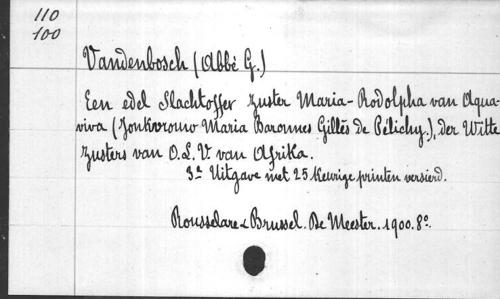 110
100
Vandenbosch (Abbé G.)
Een edel Slachtoffer Zuster Maria-Rodolpha van Aqua-
viva (Jonkvrouw Maria Baronnes Gillès de Pélichy.), der Witte
Zusters van O.L.V. van Afrika.
3e Uitgave met 25 keurige printen versierd.
Rousselare & Brussel. De Meester. 1900. 8º.